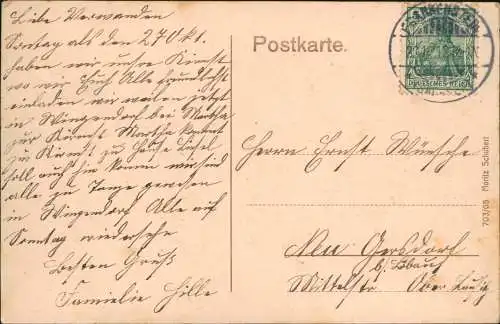 Liebe Verwanden
Sontag als den 27 Okt.
haben wir unsre Kirmst
wo wir Euch Alle freundlichst
einladen wir weilen jetzt
in Wingendorf bei Martha
zur Kirmst Martha kommt
zu Kirmst zu Hause Liesel
soll auch hin kommen wir sind
alle zu Tanze gewesen
in Wingendorf Alle auf
Sontag wiedersehn
Besten Gruß
Familie Hille
Postkarte.
FRANKENSTEIN
DEUTSCHES REICH
Herrn Ernst Wünsche
Neu Gersdorf
b/. Ebau
Mittelstr. Ober
703/05 Moritz Schubert